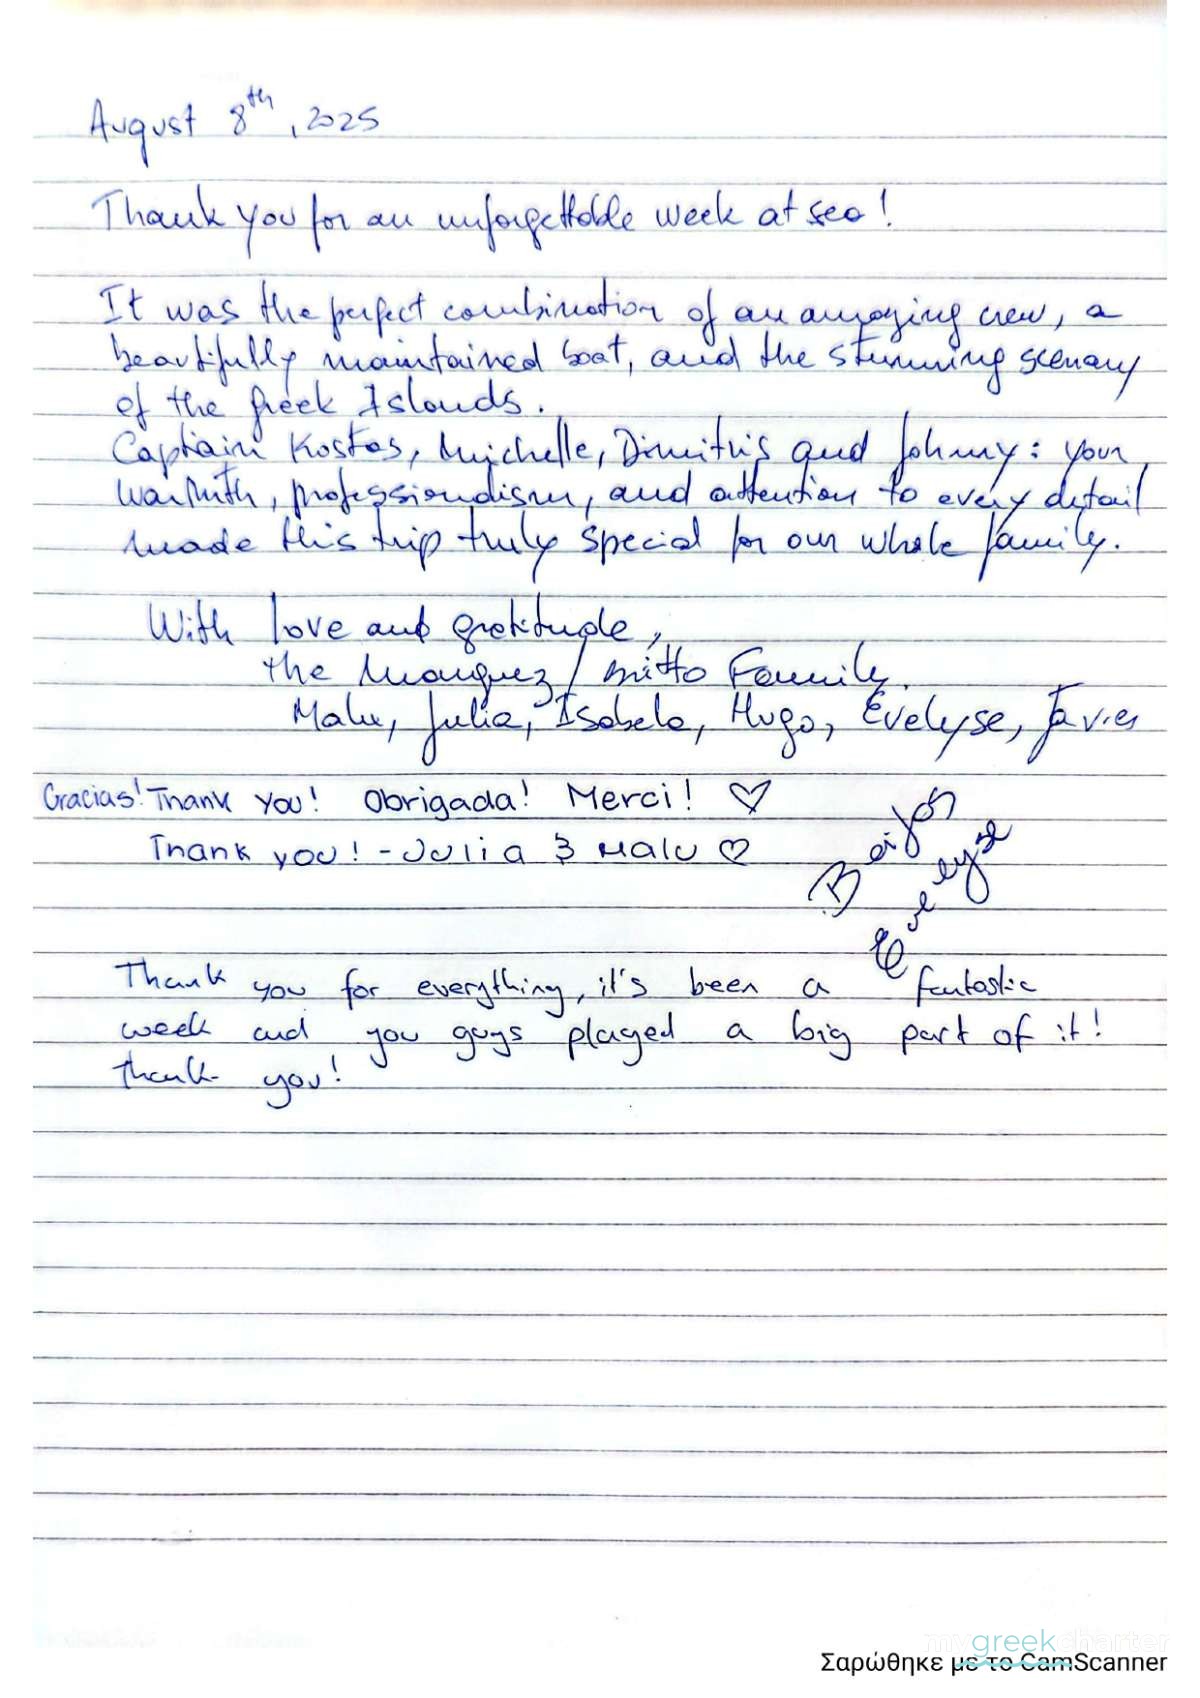 August 8th, 2025
Thank you for an unforgettable week at sea!
It was the perfect combination of an amazing crew, a
beautifully maintained boat, and the stunning scenary
of the Greek Islands.
Captain Kostas, Michelle, Dimitris and Johnny: your
warmth, professionalism, and attention to every detail
made this trip truly special for our whole family.
With love and gratitude,
the Marquez / Britto Family.
Malu, Julia, Isabela, Hugo, Evelyse, Javier
Gracias! Thank you! Obrigada! Merci! ♡
Thank you! - Julia & Malu ♡
Beijos
Evelyse
Thank you for everything, it's been a fantastic
week and you guys played a big part of it!
Thank you!
mygreekcharter
Σαρώθηκε με το CamScanner